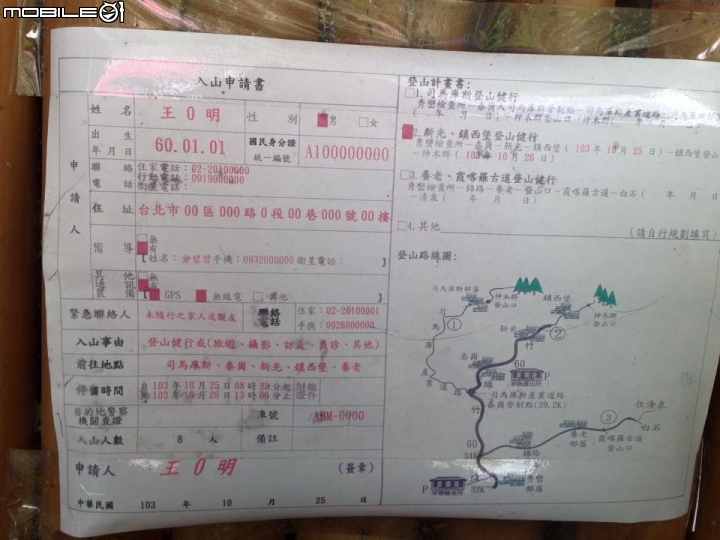 MOBILE01
入山申請書
申請人
姓名 王0明 性別 男 女
出生年月日 60.01.01 國民身分證統一編號 A100000000
聯絡電話
住家電話:02-20100000
行動電話:0919000000
衛星電話:
住址 台北市00區000路0段00巷000號00樓
嚮導
無
有
【姓名: 手機:0932000000 衛星電話: 】
其他通訊裝備
無
有
GPS 無線電 其他
緊急聯絡人 未隨行之家人或親友 聯絡電話
住家:02-20100001
手機:0926000000
入山事由 登山健行或(旅遊、攝影、訪友、義診、其他)
前往地點 司馬庫斯、泰崗、新光、鎮西堡、養老
停留時間
自103年10月25日08時25分起
至103年10月26日13時00分止
附繳證件
目的地警察機關查證 車號 ABM-0000
入山人數 8 人 備註
申請人 王0明 (簽章)
中華民國 103 年 10 月 25 日
登山計畫書:
1.司馬庫斯登山健行
2.新光、鎮西堡登山健行
秀巒檢查所-泰崗-新光-鎮西堡(103年10月25日)-鎮西堡登山口
-神木群(103年10月26日)
3.養老、霞喀羅古道登山健行
秀巒檢查所-錦路-養老-登山口-霞喀羅古道-白石( 年 月 日)
-清泉( 年 月 日)
4.其他 (請自行規劃填寫)
登山路線圖:
司馬庫斯部落
神木群登山口
鎮西堡
神木群登山口
新光
①
②
竹
60
線
泰崗
司馬庫斯產業道路
司馬庫斯產業道路
泰崗管制點(39.2K)
竹
60
34K
③
往清泉
白石
養老部落
霞喀羅古道登山口
錦路
P
32K
秀巒部落
P